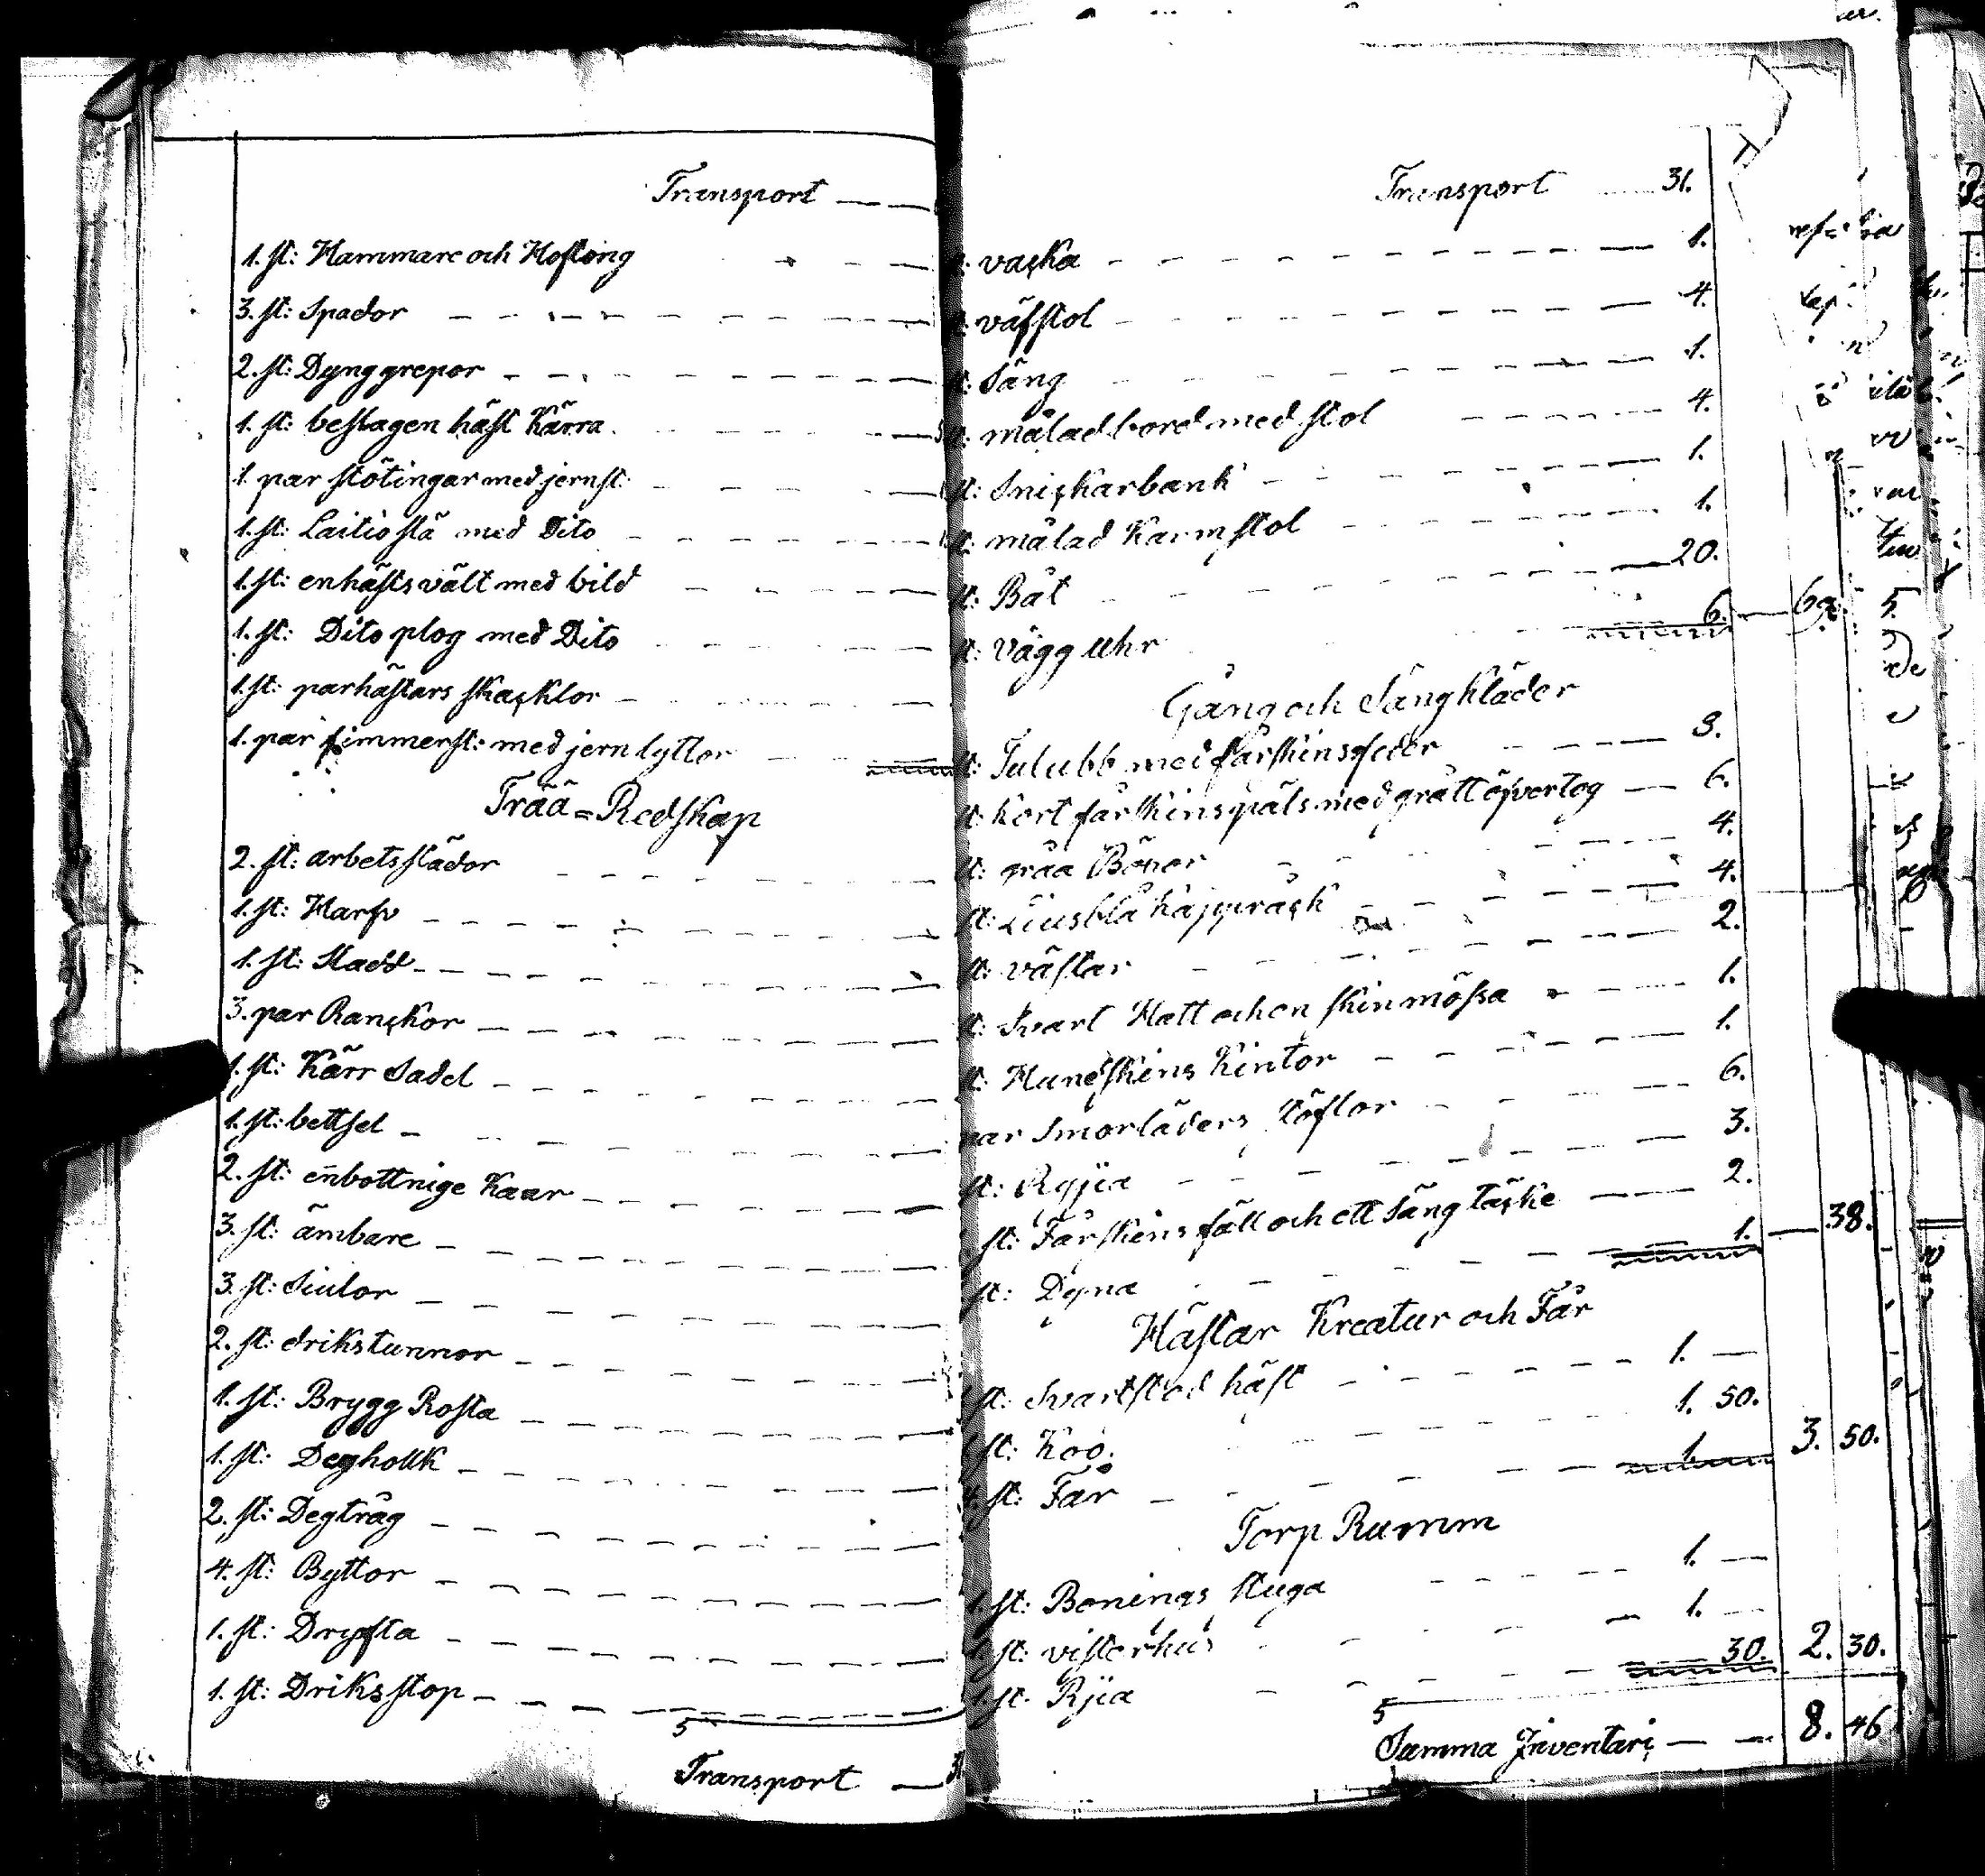 Transport
1. st: Hammare och Hoftång
3. st: Spador
2. st: Dynggrepor
1. st: beslagen häst Kärra
1. par stötingar med jernst:
1. st: Laitio stå med Dito
1. st: enhästs vält med bild
1. st: Dito plog med Dito
1. st: parhästars skacklor
1. par timmerst: med jern lyttor
Trää=Redskap
2. st: arbetsslädor
1. st: Harfv
1. st: Sladd
3. par Ranckor
1. st: Kärr Sadel
1. st: bettsel
2. st: enbottnige Kaar
3. st: ämbare
3. st: Siulor
2. st: drikstunnor
1. st: Brygg Rosta
1. st: Deghollk
2. st: Degtråg
4. st: Byttor
1. st: Dryfta
1. st: Driksstop
Transport
Transport 31.
vacka 1.
väfstol 4.
Säng 1.
målad bord med stol 4.
st: Snickarbänk 1.
st: målad Karmstol 1.
st: Båt 20.
st: vägg Uhr 6.
Gång och Sängkläder
st: Tulubb med fårskinsfoder 3.
st: kort fårskinspäls med grått öfvertog 6.
st: gråa Böxor 4.
st: Liusblå 4.
st: västar 2.
st: Svart Hatt och en skinmössa 1.
st: Hundskins Kintor 1.
par Smorläders stöflor 6.
st: Ryjia 3.
st: Fårskinsfäll och ett Sängtäcke 2.
st: Dyna 1. 38.
Hästar Kreatur och Får
st: Svart stod häst 1.
st: Koo. 1. 50.
4. st: Får 1. 3. 50.
Torp Rumm
1. st: Bonings stuga 1.
1. st: visterhus 1.
1. st: Rjia 30. 2. 30.
Summa Inventari 8. 46